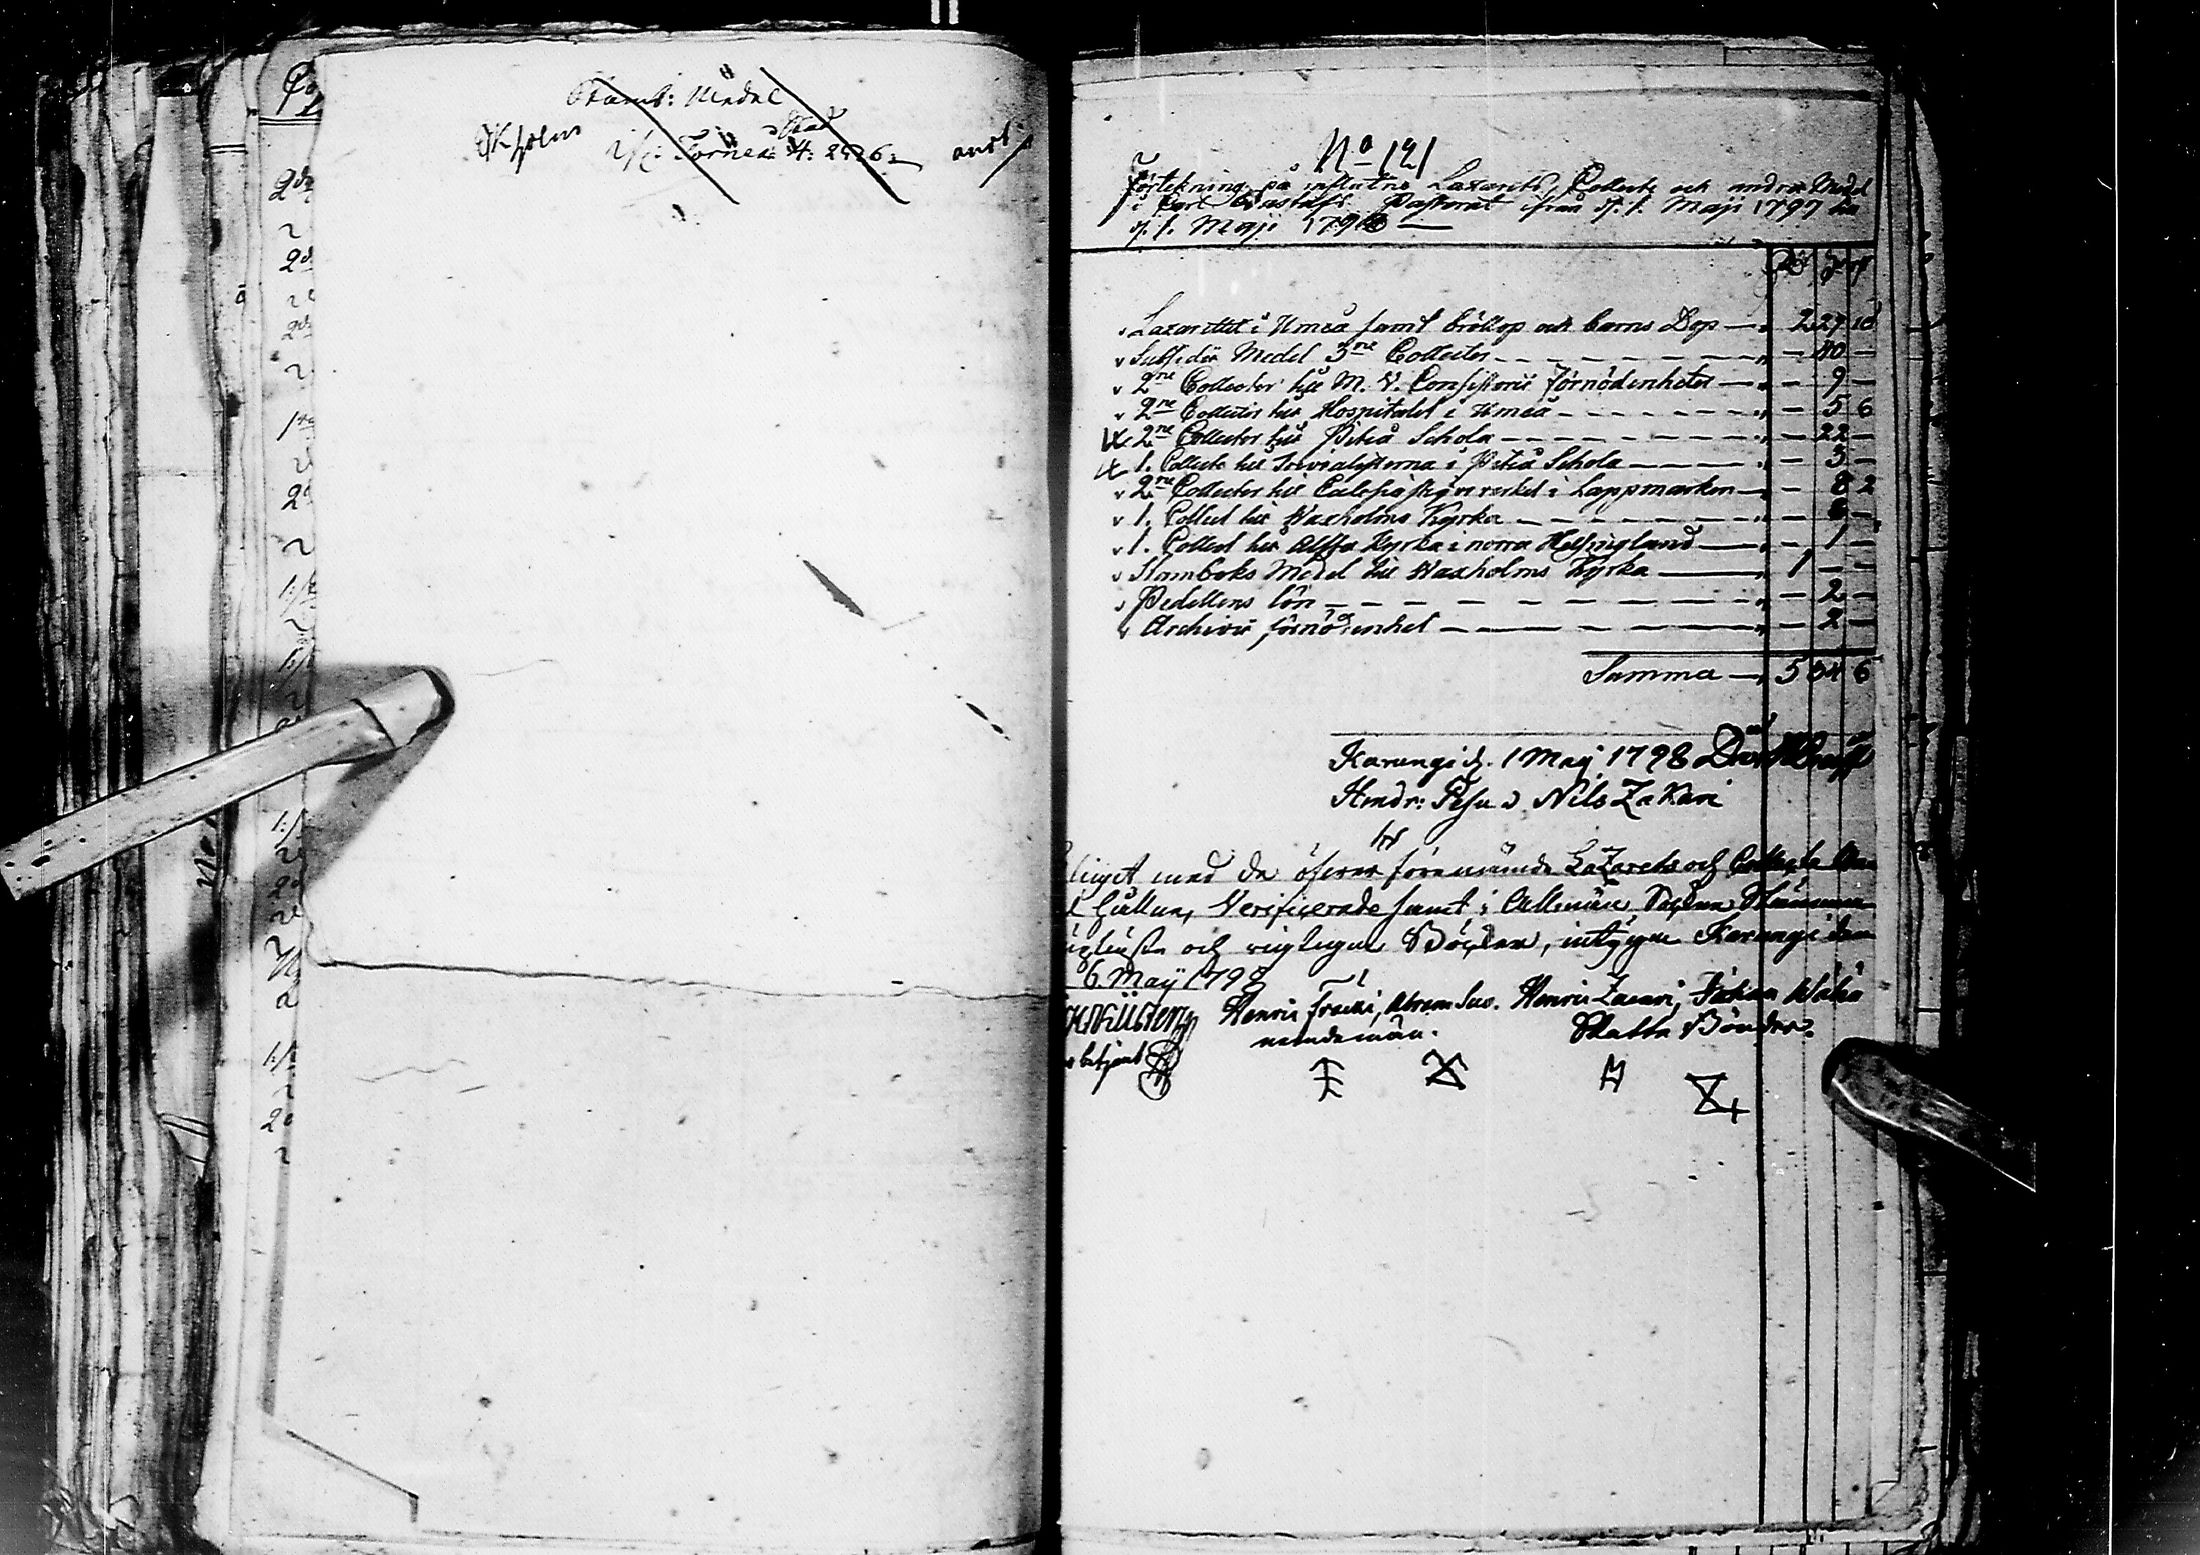 Stamb: Medel
Torneå Stad
No 121
Förtekning på influtne Lazaretts, Collect och andra Medel
i Carl Gustafs Pastorat ifrån d. 1. Maji 1797 til
d. 1. Maji 1798 —
Lazarettet i Umeå samt bröllop och barns Dop — 2 27 10
Subsidie Medel 3ne Collecter — — 40 —
2ne Collecter till M. V. Consistorii förnödenheter — — 9 —
2ne Collecter till Hospitalet i Umeå — — 5 6
2ne Collecter till Piteå Schola — — 22 —
1. Collect till Trivialisterna i Piteå Schola — — 3 —
2ne Collecter till Eclesiastiqve verket i Lappmarken — — 8 2
1. Collect till Waxholms Kyrka — — 8 —
1. Collect till Alfta Kyrka i norra Helsingland — — 1 —
Stamboks Medel till Waxholms Kyrka — 1 — —
Pedellens lön — — 2 —
Archivii förnödenhet — — 2 —
Summa — 5 34 6
Karungi d. 1 Maij 1798
Hindr: Pesu Nils Zakari
med de öfvan förenämnde Lazarets och Collecte
Gällna, Verificerade samt i Allmän Sockne Stämma
och Böcker, intygar Karungi den
6. Maÿ 1798
Henric Abram Henric Zacari, Johan
nemdemän. Skatte Bönder.
betjent